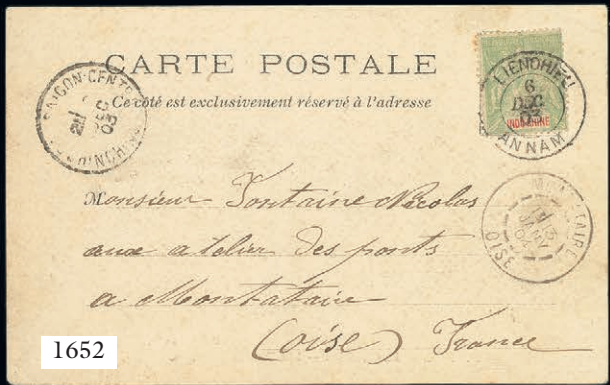 CARTE POSTALE
Ce côté est exclusivement réservé à l'adresse
SAIGON-CENTRAL
DEC
03
COCHINCHINE
LIENCHIEU
6
DEC
03
ANNAM
INDO-CHINE
MONTATAIRE
OISE
Monsieur Fontaine Nicolas
aux atelier des ponts
a Montataire
(Oise) France
1652